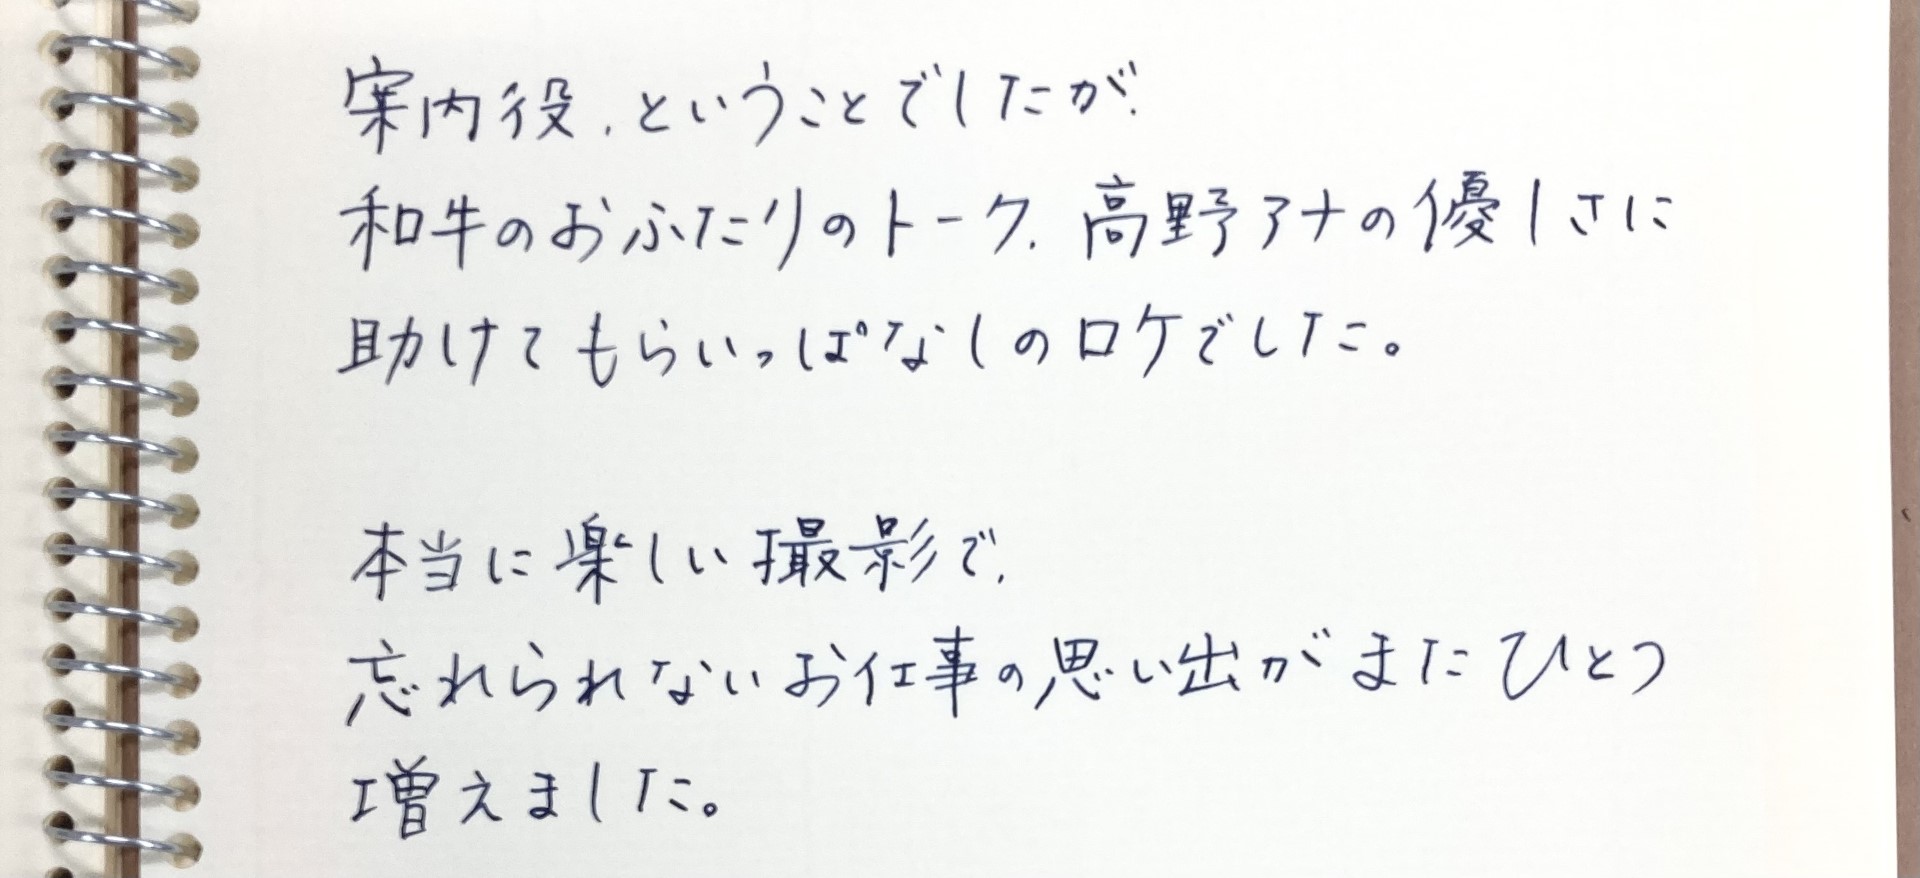 案内役、ということでしたが、
和牛のおふたりのトーク、高野アナの優しさに
助けてもらいっぱなしのロケでした。
本当に楽しい撮影で、
忘れられないお仕事の思い出がまたひとつ
増えました。